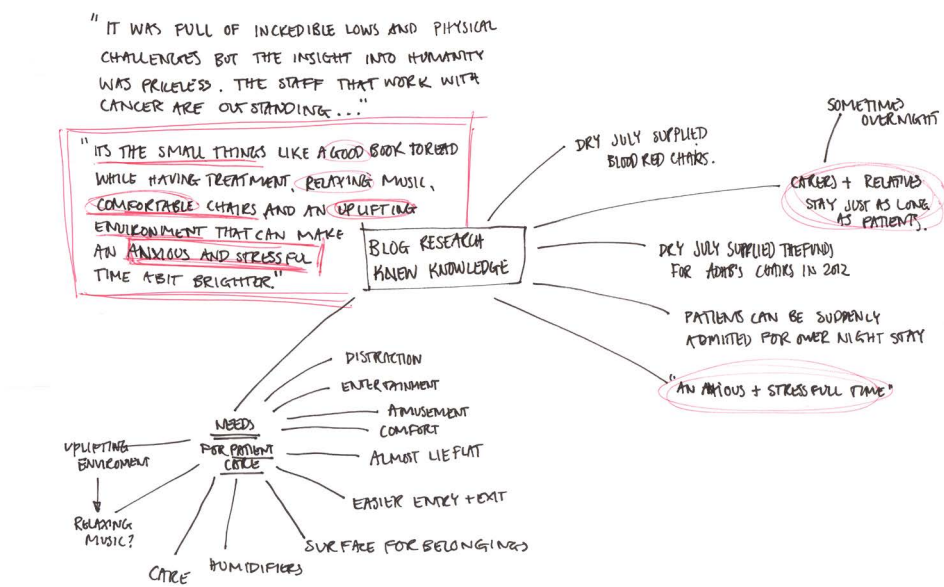 "IT WAS FULL OF INCREDIBLE LOWS AND PHYSICAL
CHALLENGES BUT THE INSIGHT INTO HUMANITY
WAS PRICELESS. THE STAFF THAT WORK WITH
CANCER ARE OUTSTANDING..."
"ITS THE SMALL THINGS LIKE A GOOD BOOK TO READ
WHILE HAVING TREATMENT, RELAXING MUSIC,
COMFORTABLE CHAIRS AND AN UPLIFTING
ENVIRONMENT THAT CAN MAKE
AN ANXIOUS AND STRESSFUL
TIME A BIT BRIGHTER."
BLOG RESEARCH
KNEW KNOWLEDGE
DRY JULY SUPPLIED
BLOOD RED CHAIRS.
SOMETIMES
OVERNIGHT
CARERS + RELATIVES
STAY JUST AS LONG
AS PATIENTS.
DRY JULY SUPPLIED THE FUNDS
FOR CHAIRS IN 2012
PATIENTS CAN BE SUDDENLY
ADMITTED FOR OVER NIGHT STAY
"AN ANXIOUS + STRESSFULL TIME"
NEEDS
FOR PATIENT
CARE
DISTRACTION
ENTERTAINMENT
AMUSEMENT
COMFORT
ALMOST LIE FLAT
EASIER ENTRY + EXIT
SURFACE FOR BELONGINGS
HUMIDIFIERS
CARE
UPLIFTING
ENVIROMENT
RELAXING
MUSIC?